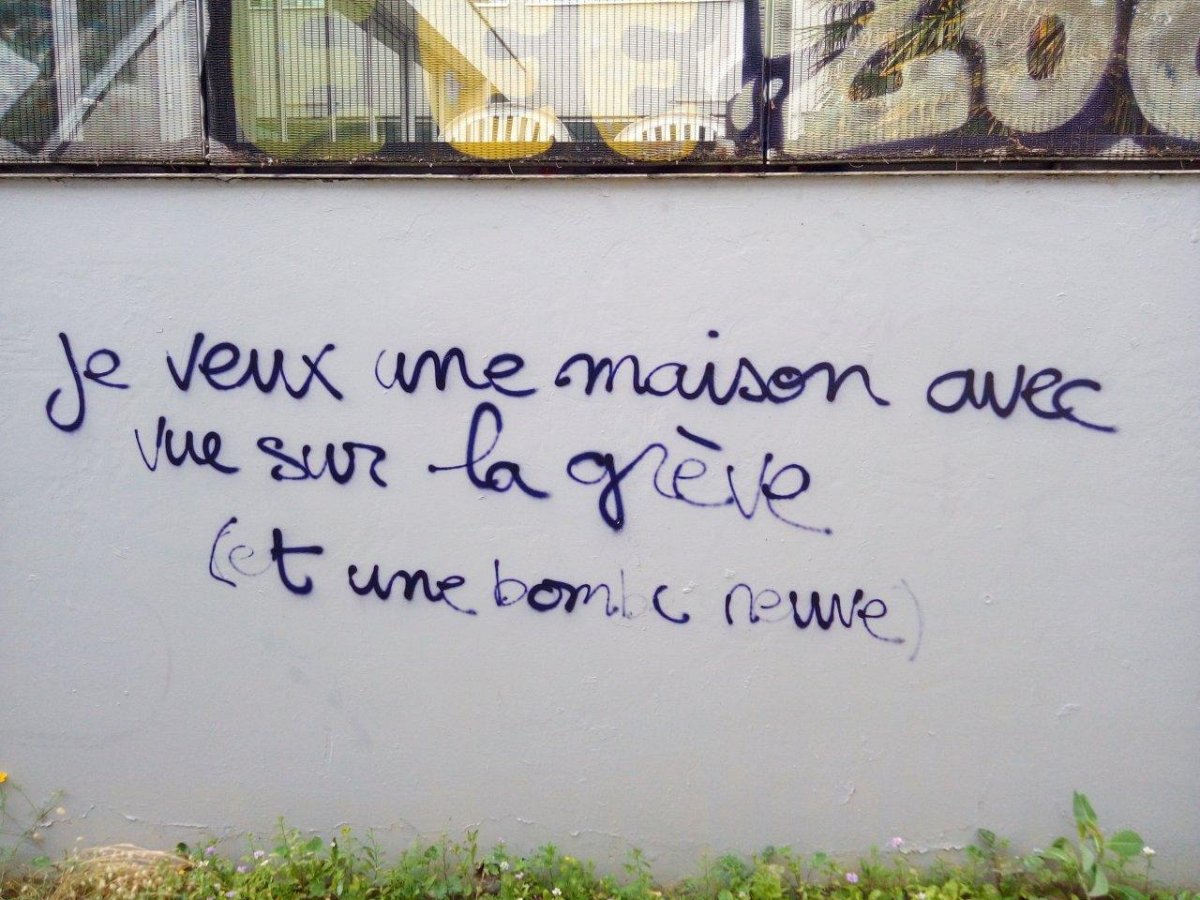 je veux une maison avec
vue sur la grève
(et une bombe neuve)